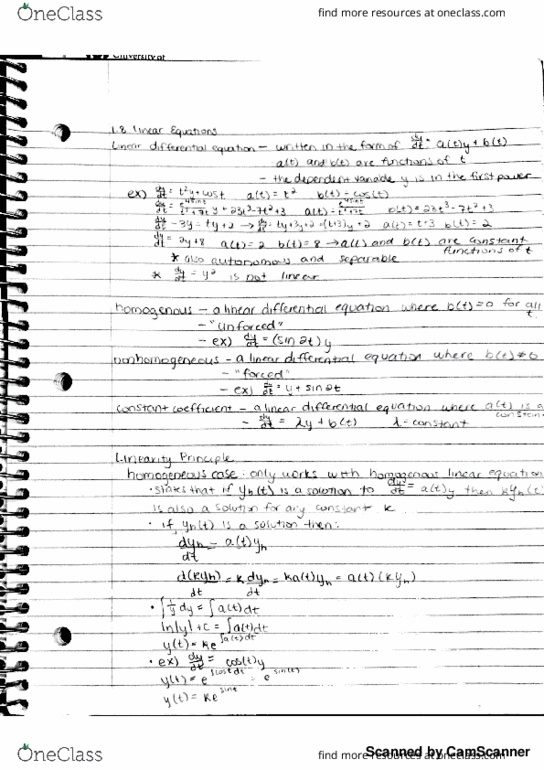 OneClass
find more resources at oneclass.com
University of
1.8 Linear Equations
Linear differential equation - written in the form of dy/dt = a(t)y + b(t)
a(t) and b(t) are functions of t
- the dependent variable y is in the first power
ex) dy/dt = t²y + cost a(t) = t² b(t) = cos(t)
y + 23t³ - 7t² + 3 a(t) = b(t) = 23t³ - 7t² + 3
dy/dt - 3y = ty + 2 → dy/dt = ty + 3y + 2 = (t+3)y + 2 a(t) = t + 3 b(t) = 2
dy/dt = 2y + 8 a(t) = 2 b(t) = 8 → a(t) and b(t) are constant
functions of t
* also autonomous and separable
* dy/dt = y² is not linear
homogenous - a linear differential equation where b(t) = 0 for all
t
- "unforced"
- ex) dy/dt = (sin 2t) y
nonhomogeneous - a linear differential equation where b(t) ≠ 0
- "forced"
- ex) dy/dt = y + sin 2t
constant coefficient - a linear differential equation where a(t) is a
constant
- dy/dt = λy + b(t) λ - constant
Linearity Principle
homogeneous case: only works with homogenous linear equation
• states that if yₕ(t) is a solution to dy/dt = a(t)y then kyₕ(t)
is also a solution for any constant k
• if yₕ(t) is a solution then:
dyₕ/dt = a(t)yₕ
d(kyₕ)/dt = k dyₕ/dt = ka(t)yₕ = a(t)(kyₕ)
• ∫ 1/y dy = ∫ a(t)dt
ln|y| + c = ∫a(t)dt
y(t) = ke^∫a(t)dt
• ex) dy/dt = cos(t)y
y(t) = e^∫cost dt = e^sin(t)
y(t) = ke^sint
Scanned by CamScanner
OneClass
find more resources at oneclass.com